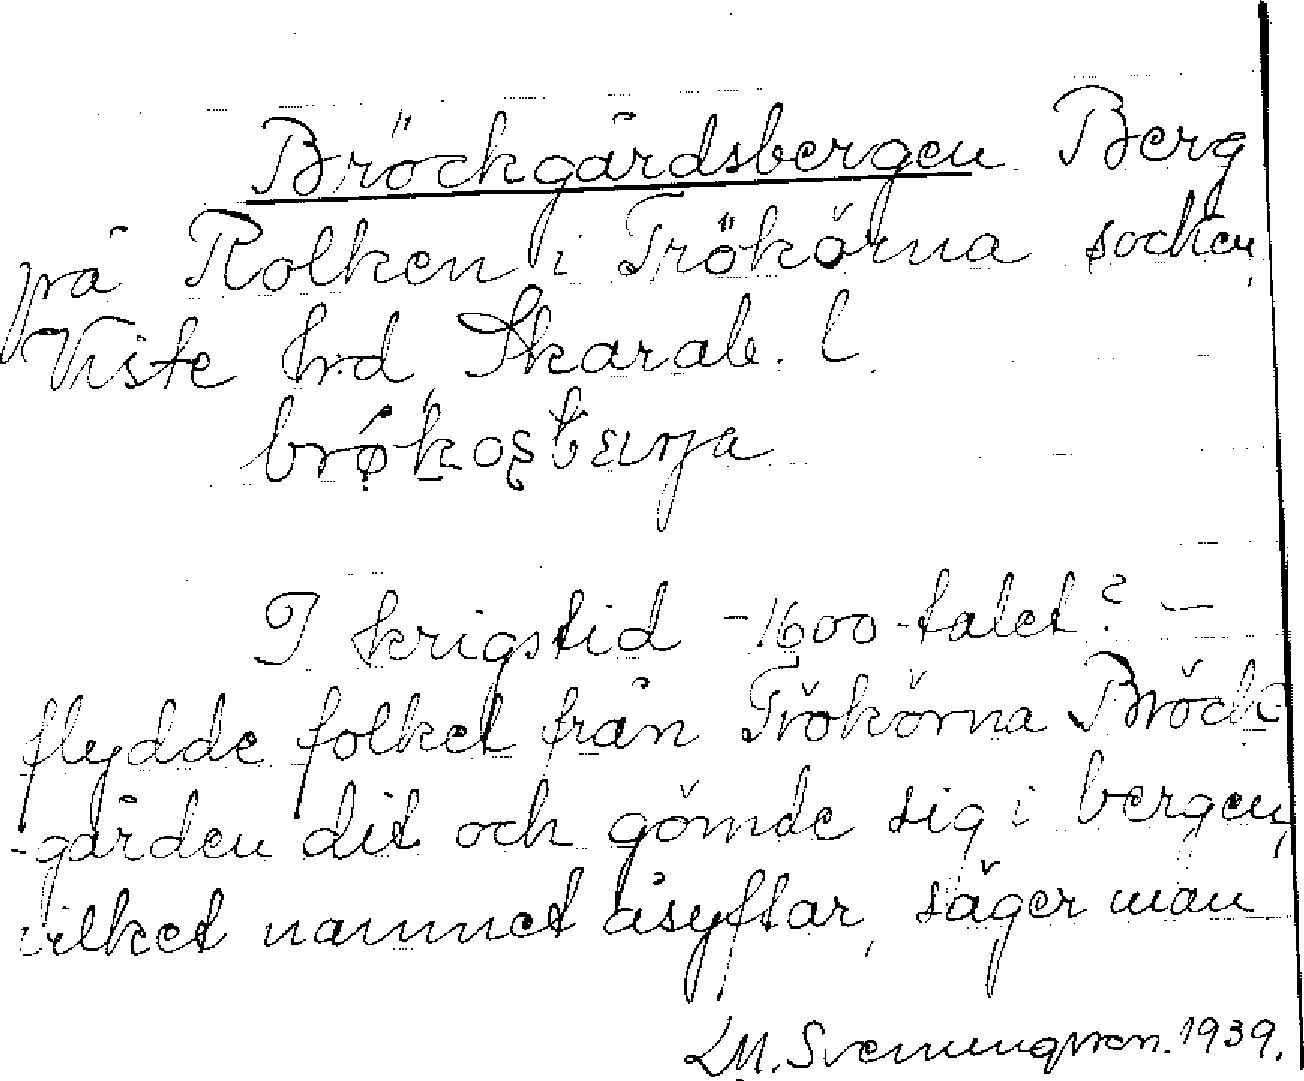 Bröckgårdsbergen Berg
på Rolken i Trökörna socken,
Viste hrd Skarab. l.
I krigstid - 1600-talet? -
flydde folket från Trökörna Bröck-
-gården dit och gömde sig i bergen,
vilket namnet åsyftar, säger man
LM. Svenungsson. 1939.